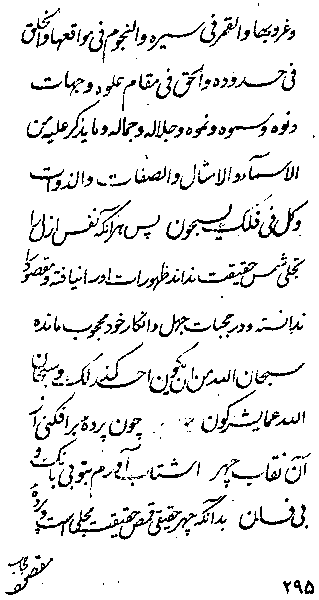 وغروبها والقمر فی سیره والنجوم فی مواقعها والخلق
فی حدوده والحق فی مقام علوه وجهات
دنوه وسموه ونموه وجلاله وجماله وما یذکر علیه من
الاسمآء والامثال والصفات والذوات
وکل فی فلک یسبحون پس هرانکه نفس ازل را
تجلی شمس حقیقت نداند ظهورات اورا نیافته ومقصود را
ندانسته و در حجبات جهل وانکار خود محجوب مانده
سبحان الله من ان یکون احد کینونتک وسبحان
الله عما یشرکون چون پرده برافکنی از
آن نقاب چهر اشتاب آورم بتو بی بانک و
بی فسان بدانکه چهر حقیقی شمس حقیقت مجلی است و پرده
حجاب
مقصود
۲۹۵